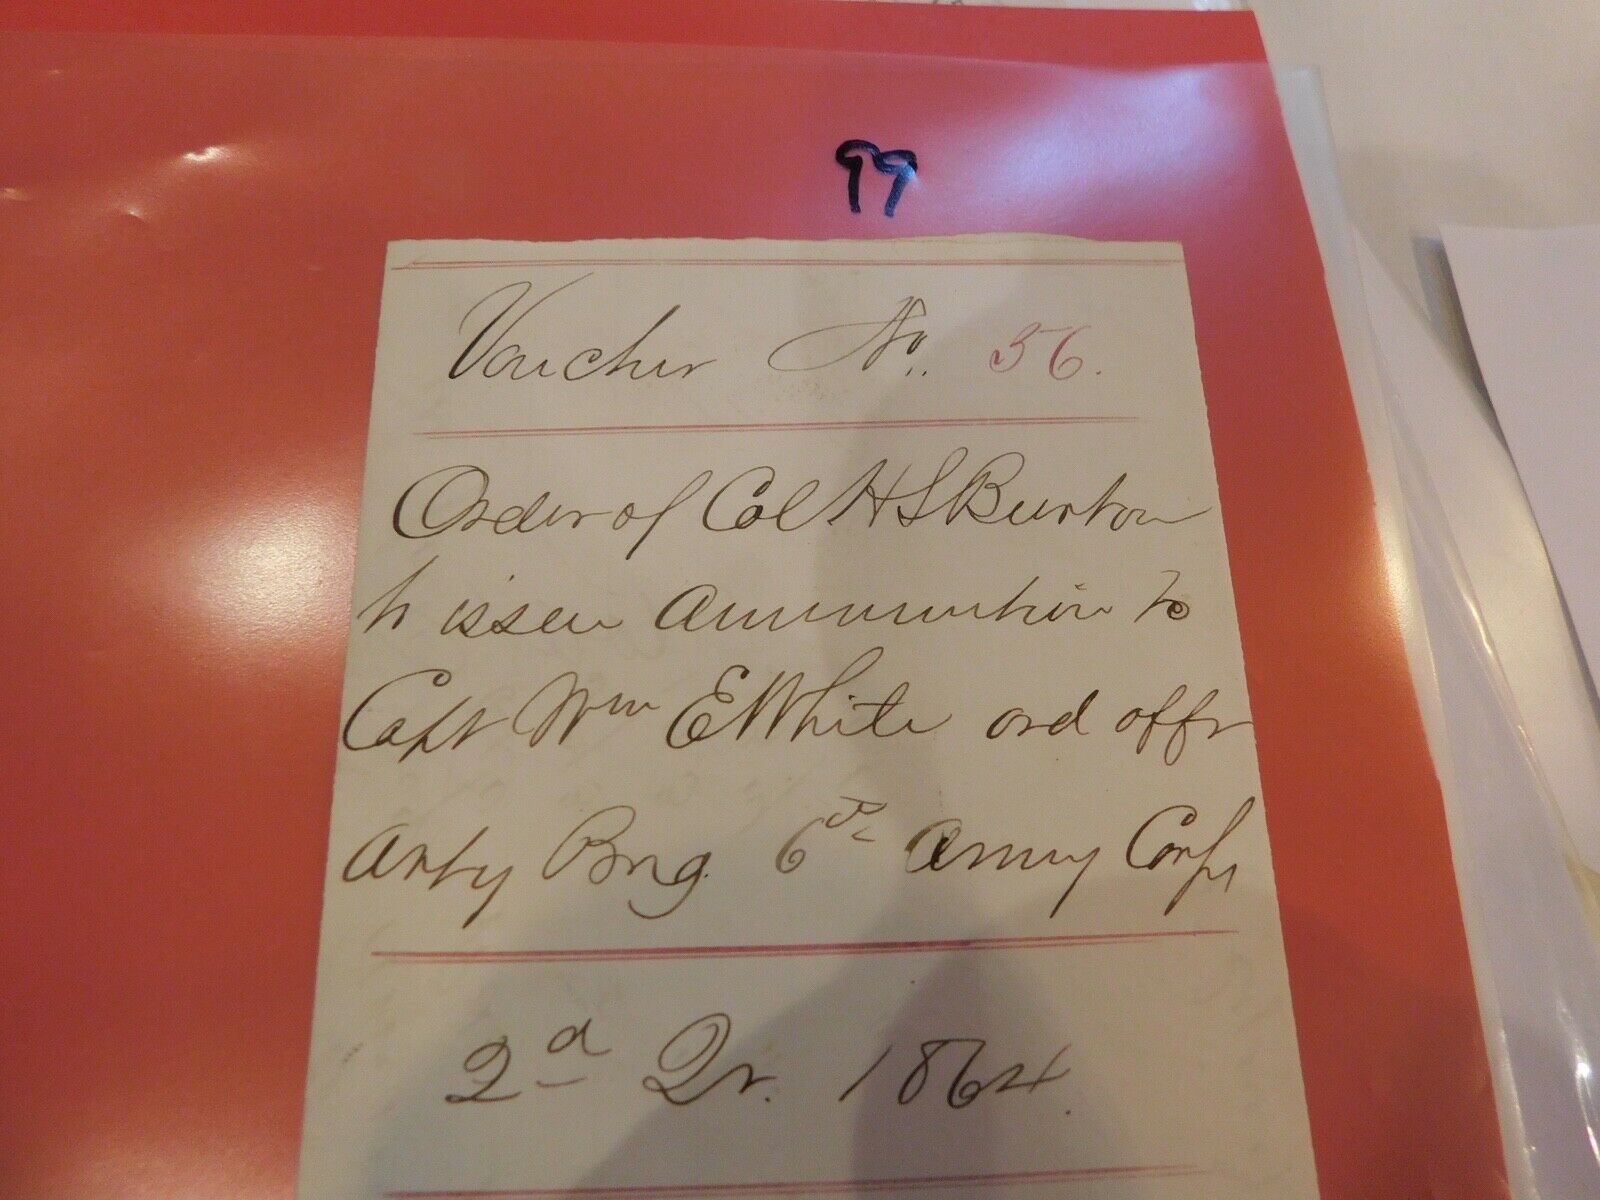 99
Voucher No. 56.
Order of Col H S Burton
to issue ammunition to
Capt Wm E White ord offr
Arty Brig. 6th Army Corps
2d Qr. 1864.